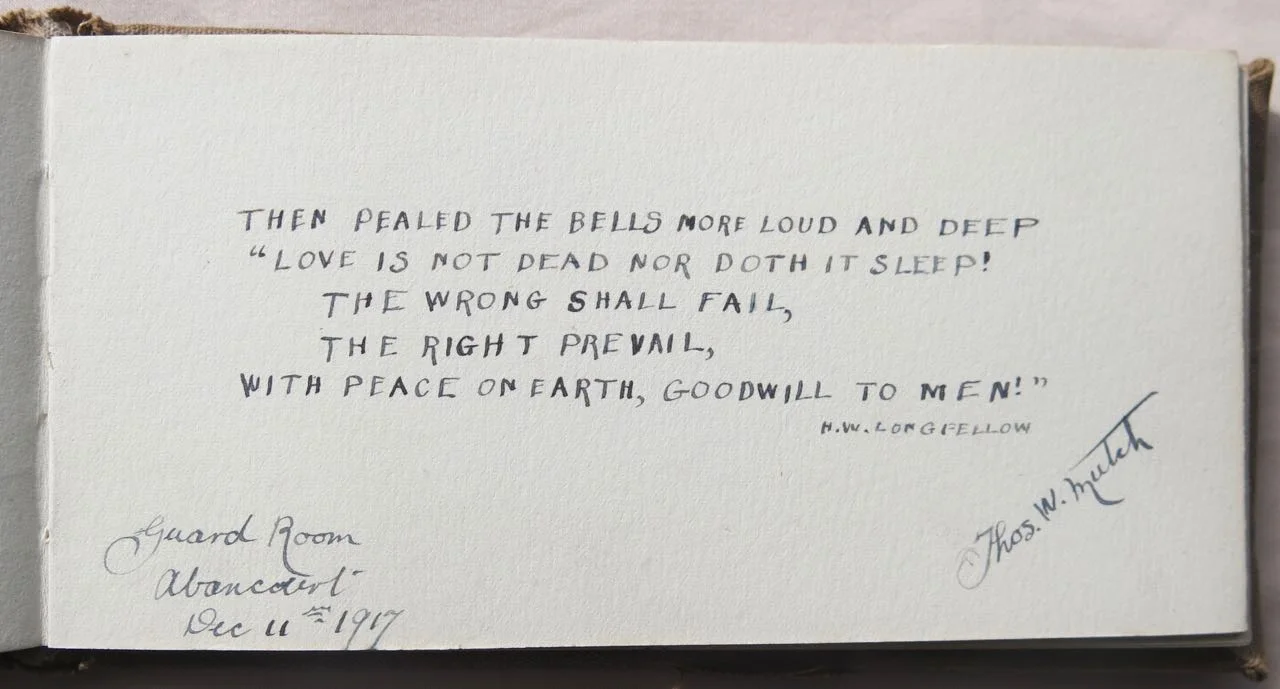 THEN PEALED THE BELLS MORE LOUD AND DEEP
"LOVE IS NOT DEAD NOR DOTH IT SLEEP!
THE WRONG SHALL FAIL,
THE RIGHT PREVAIL,
WITH PEACE ON EARTH, GOODWILL TO MEN!"
H.W. LONGFELLOW
Thos. W. Mutch
Guard Room
Abancourt
Dec 11th 1917